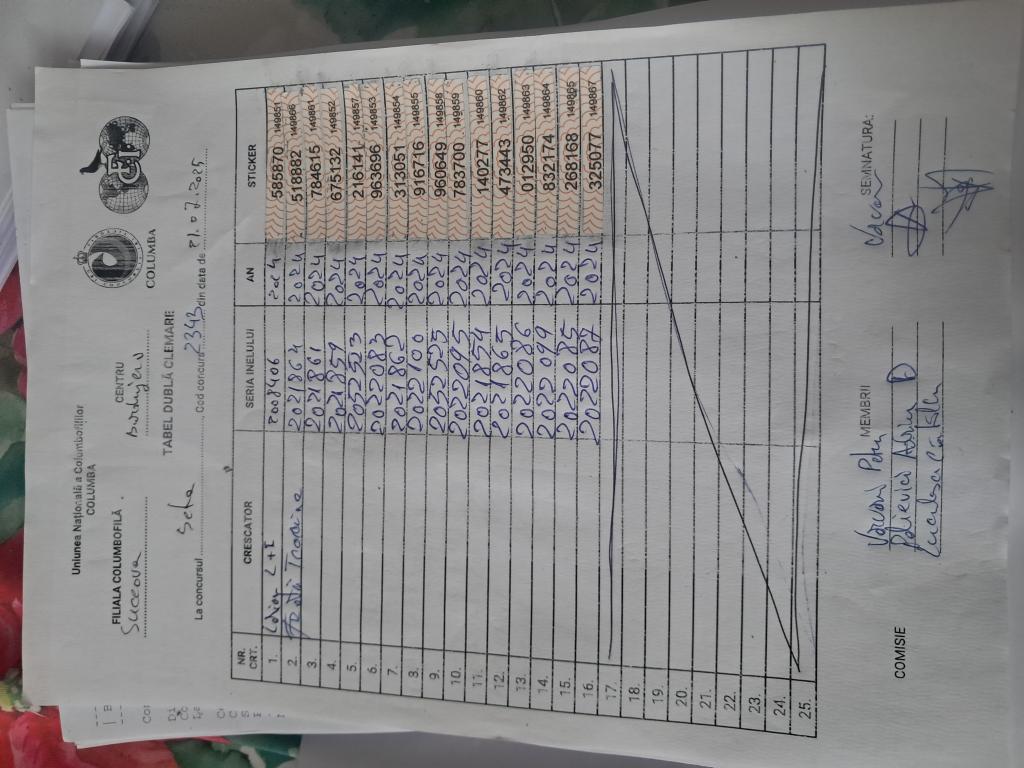 Uniunea Națională a Columbofililor
COLUMBA
COLUMBA
FILIALA COLUMBOFILĂ
CENTRU
Suceava
Burdujeni
TABEL DUBLĂ CLEMARE
La concursul Setra Cod concurs 2343 din data de 21.07.2025
NR. CRT. CRESCATOR SERIA INELULUI AN STICKER
1. 2008406 2024 585870 149851
2. 2021864 2024 518882 149856
3. 2021861 2024 784615 149861
4. 2021859 2024 675132 149852
5. 2052523 2024 216141 149857
6. 2022083 2024 963696 149853
7. 2021862 2024 313051 149854
8. 2022100 2024 916716 149855
9. 2052525 2024 960649 149858
10. 2022095 2024 783700 149859
11. 2021854 2024 140277 149860
12. 2021865 2024 473443 149862
13. 2022086 2024 012950 149863
14. 2022099 2024 832174 149864
15. 2022085 2024 268168 149865
16. 2022087 2024 325077 149867
17.
18.
19.
20.
21.
22.
23.
24.
25.
MEMBRII
SEMNATURA:
COMISIE
Petru